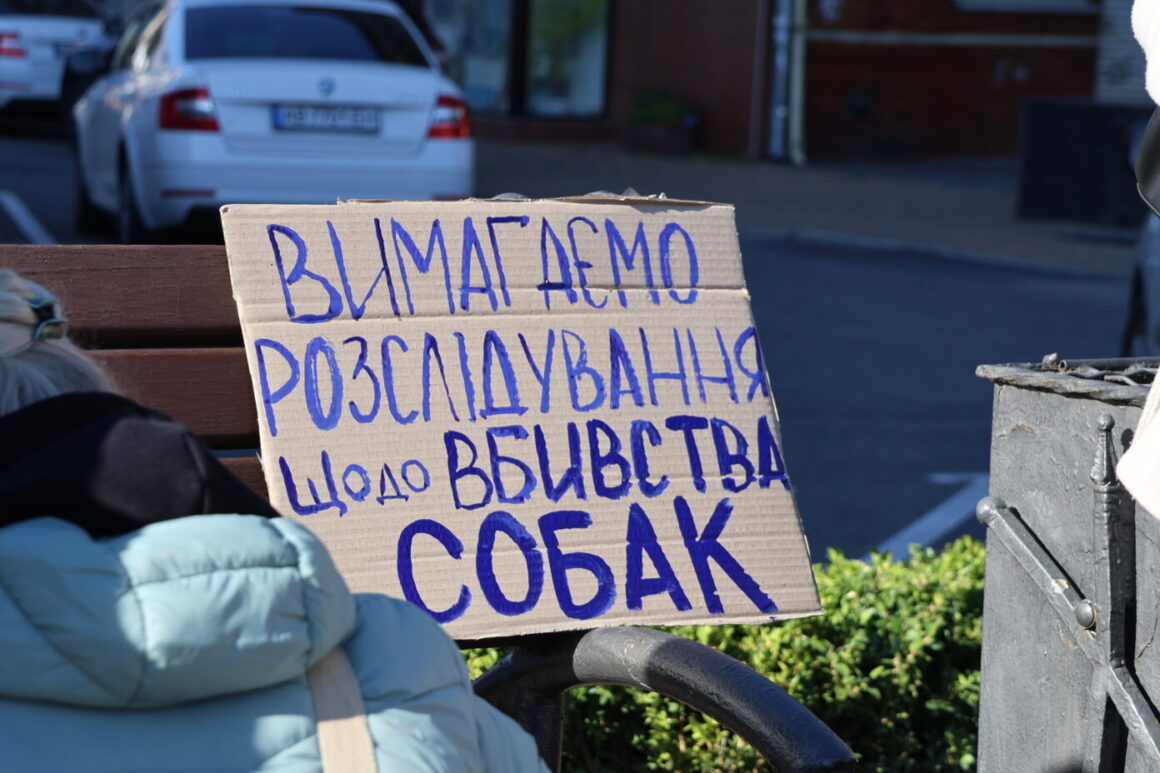 ВИМАГАЄМО
РОЗСЛІДУВАННЯ
ЩОДО ВБИВСТВА
СОБАК